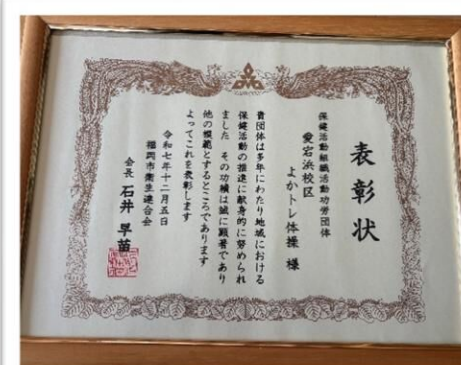 表彰状
保健活動組織活動功労団体
愛宕浜校区
よかトレ体操 様
貴団体は多年にわたり地域における
保健活動の推進に献身的に努められ
ました その功績は誠に顕著であり
他の模範とするところであります
よってこれを表彰します
令和七年十二月五日
福岡市衛生連合会
会長 石井 早苗